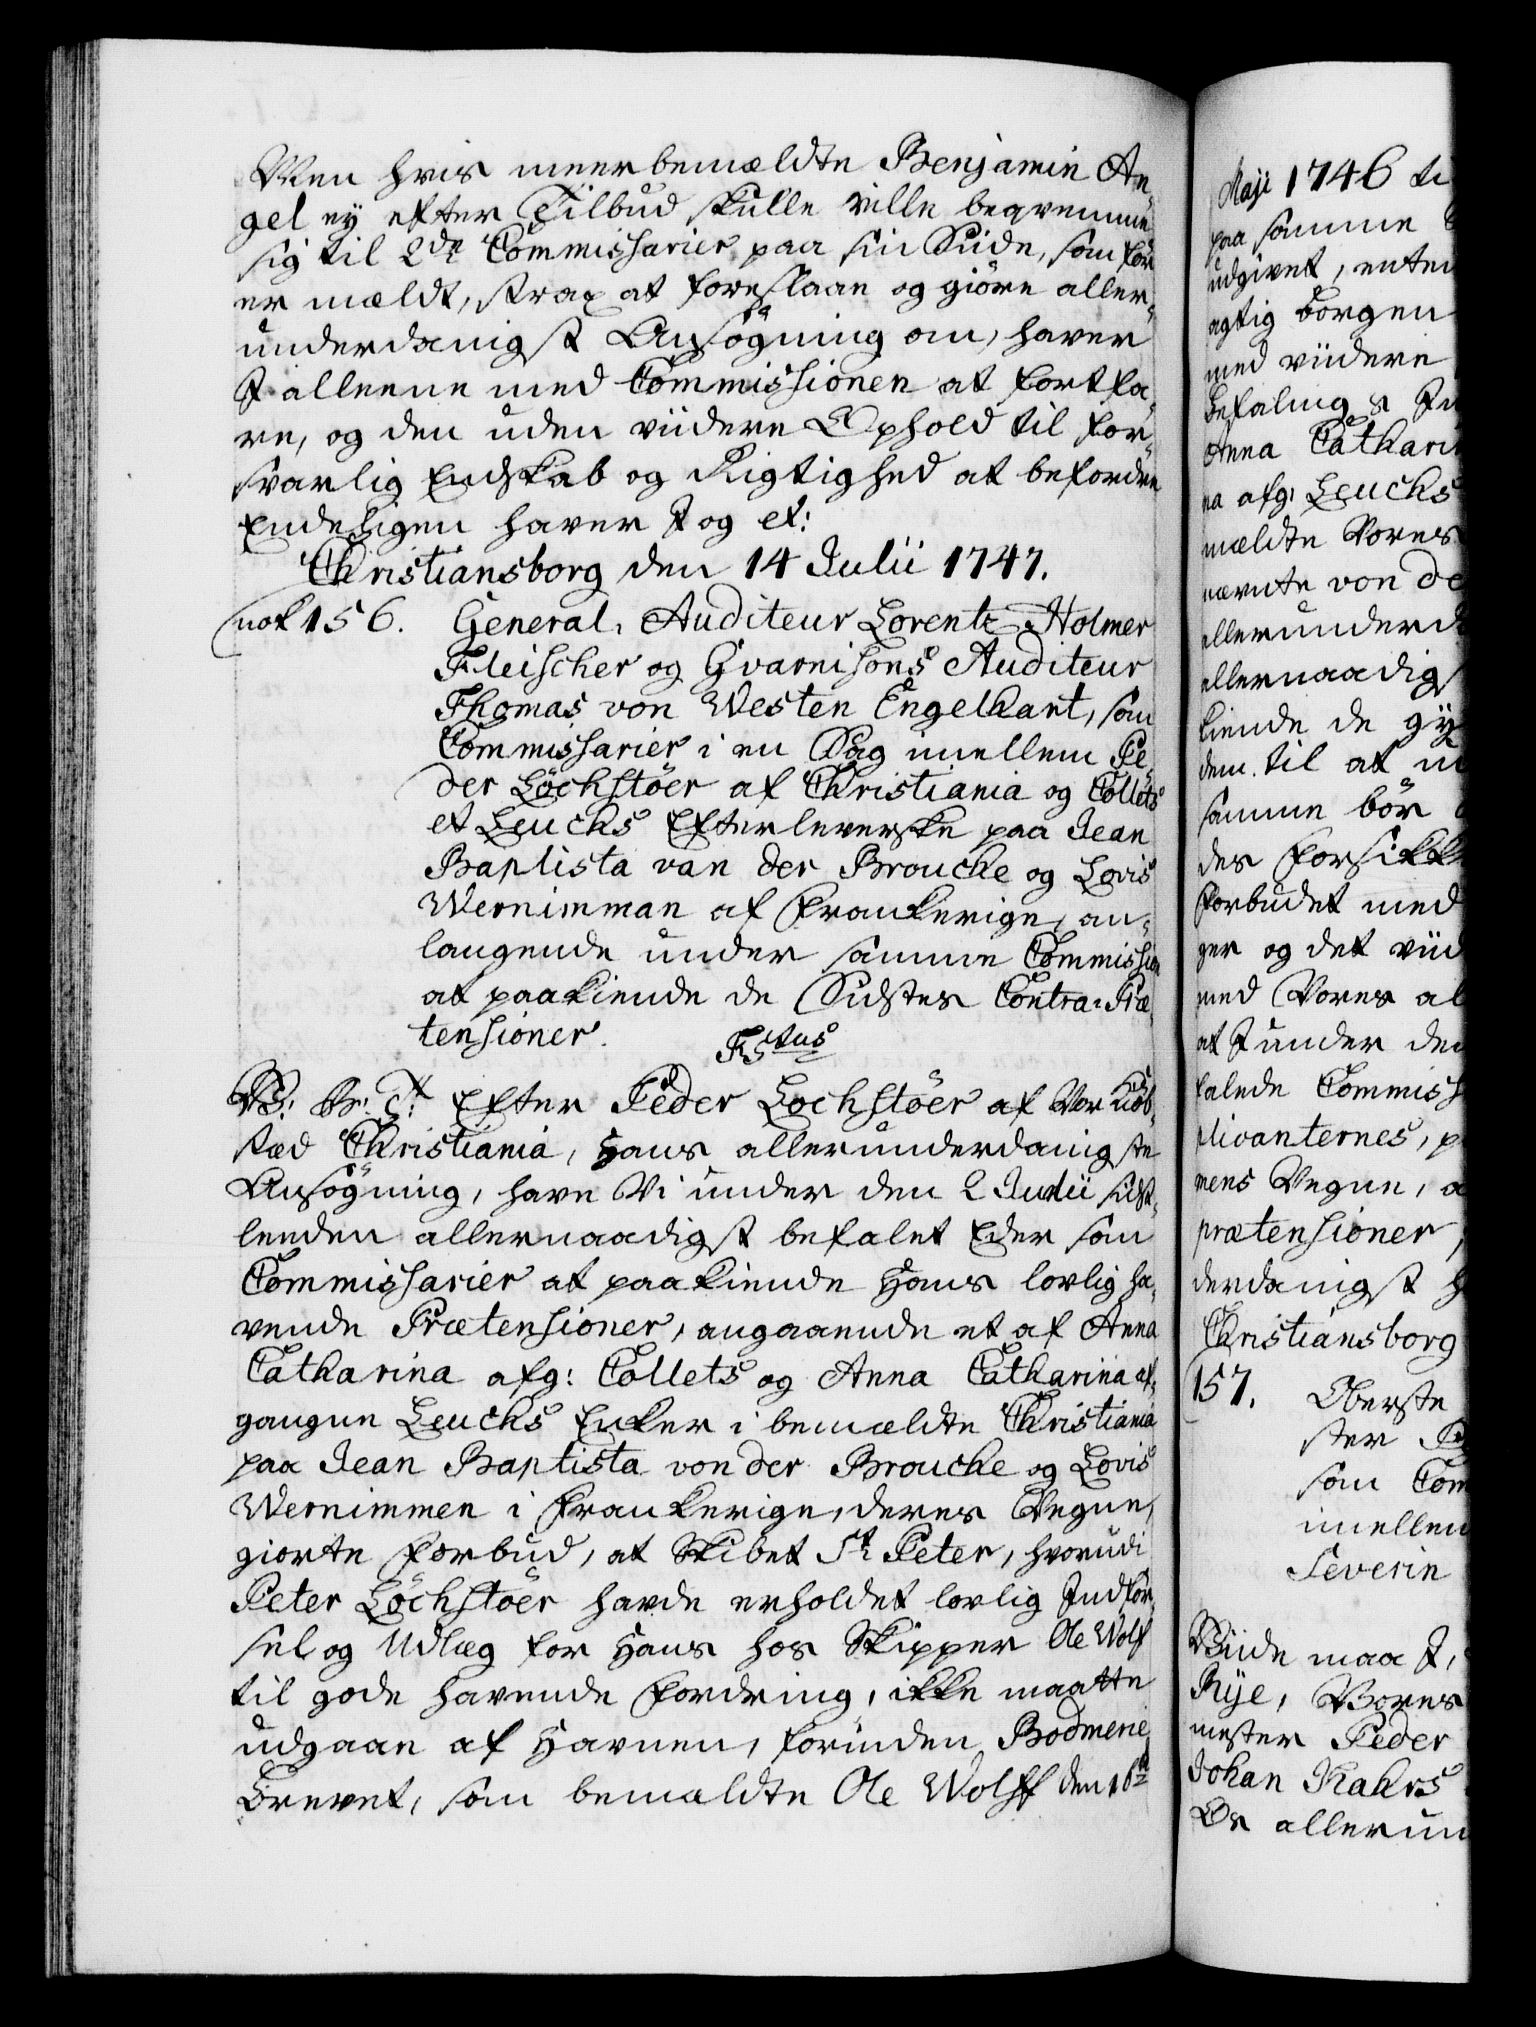 Men hvis meerbemældte Benjamin An„
gel ey efter Tilbud skulle ville beqvemme
sig til 2de Commissarier paa sin Siide, som før
er mældt, strax at foreslaae og giøre aller„
underdanigst Ansøgning om, haver
I alleene med Commissionen at fortfa„
re, og den uden viidere Ophold til for„
svarlig Endskab og Rigtighed at befordre
Endeligen haver I og et:
Christiansborg den 14 Julii 1747.
nok 156. General-Auditeur Lorentz Holmer
Fleischer og Gvarnisons Auditeur
Thomas von Westen Engelhart, som
Commissarier i en Sag imellem Pe„
der Löchstöer af Christiania og Collets
et Leuchs Efterleverske paa Jean
Baptista van der Brouche og Lovis
Wernimman af Frankerige, an„
langende under samme Commission
at paakiende de Sidstes Contra-Præ„
tensioner.
Fstus
V: G: G: Efter Peder Lochstöer af Vor Kiøb„
stæd Christiania, Hans allerunderdanigste
Ansøgning, have Vi under den 2 Junii sidst„
leeden allernaadigst befalet Eder som
Commissarier at paakiende Hans lovlig ha„
vende Prætensioner, angaaende et af Anna
Catharina afg: Collets og Anna Catharina af„
gangne Leuchs Enker i bemældte Christiania
paa Jean Baptista von der Brouche og Lovis
Wernimmen i Frankerige, deres Vegne,
giorte Forbud, at Skibet St Peter, hvorudi
Peter Löchstöer havde erholdet lovlig Indför„
sel og Udlæg for Hans hos Skipper Ole Wolf
til gode havende Fordring, ikke maatte
udgaae af Havnen, forinden Bodmerie
Brevet, som bemældte Ole Wolff den 16de
Maji 1746 ti
paa samme
udgivet, enten
agtig borgen
med viidere
befaling
Anna Cathari
na afg: Leuchs
mældte Vores
nævnte von de
allerunderd
allernaadigs
kiende de gy
dem til at
samme bør
des forsikk
Forbudet med
ger og det viid
med Vores al
at I under den
falede Commiss
plicanternes, p
mens Vegne, a
prætensioner,
derdanigst h
Christiansborg
157. Oberste
ster
som Com
imellem
Severin
Viide maa I,
Rye, Vores
mester Peder
Johan Rahrs
Os allerun